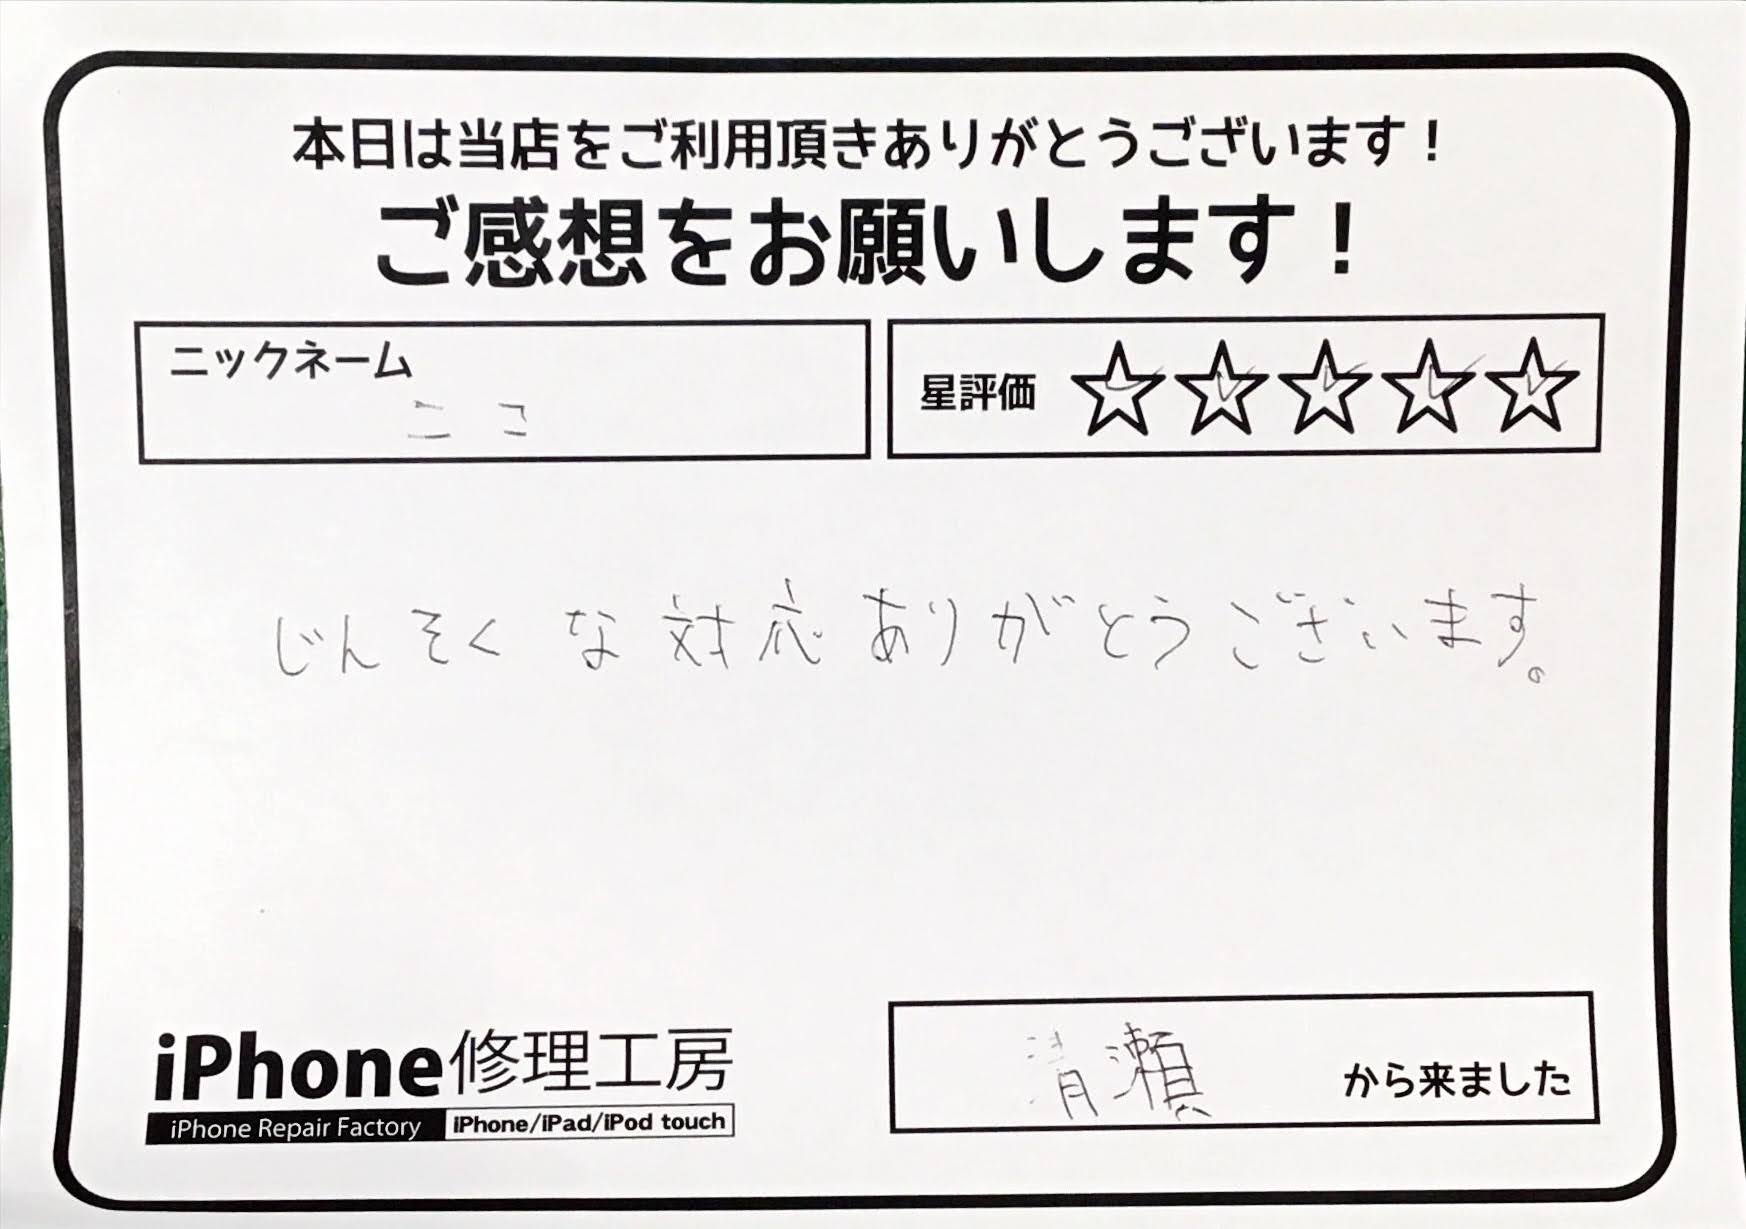 本日は当店をご利用頂きありがとうございます！
ご感想をお願いします！
ニックネーム
ここ
星評価 ☆☆☆☆☆
じんそくな対応ありがとうございます。
iPhone修理工房
iPhone Repair Factory iPhone/iPad/iPod touch
清瀬 から来ました